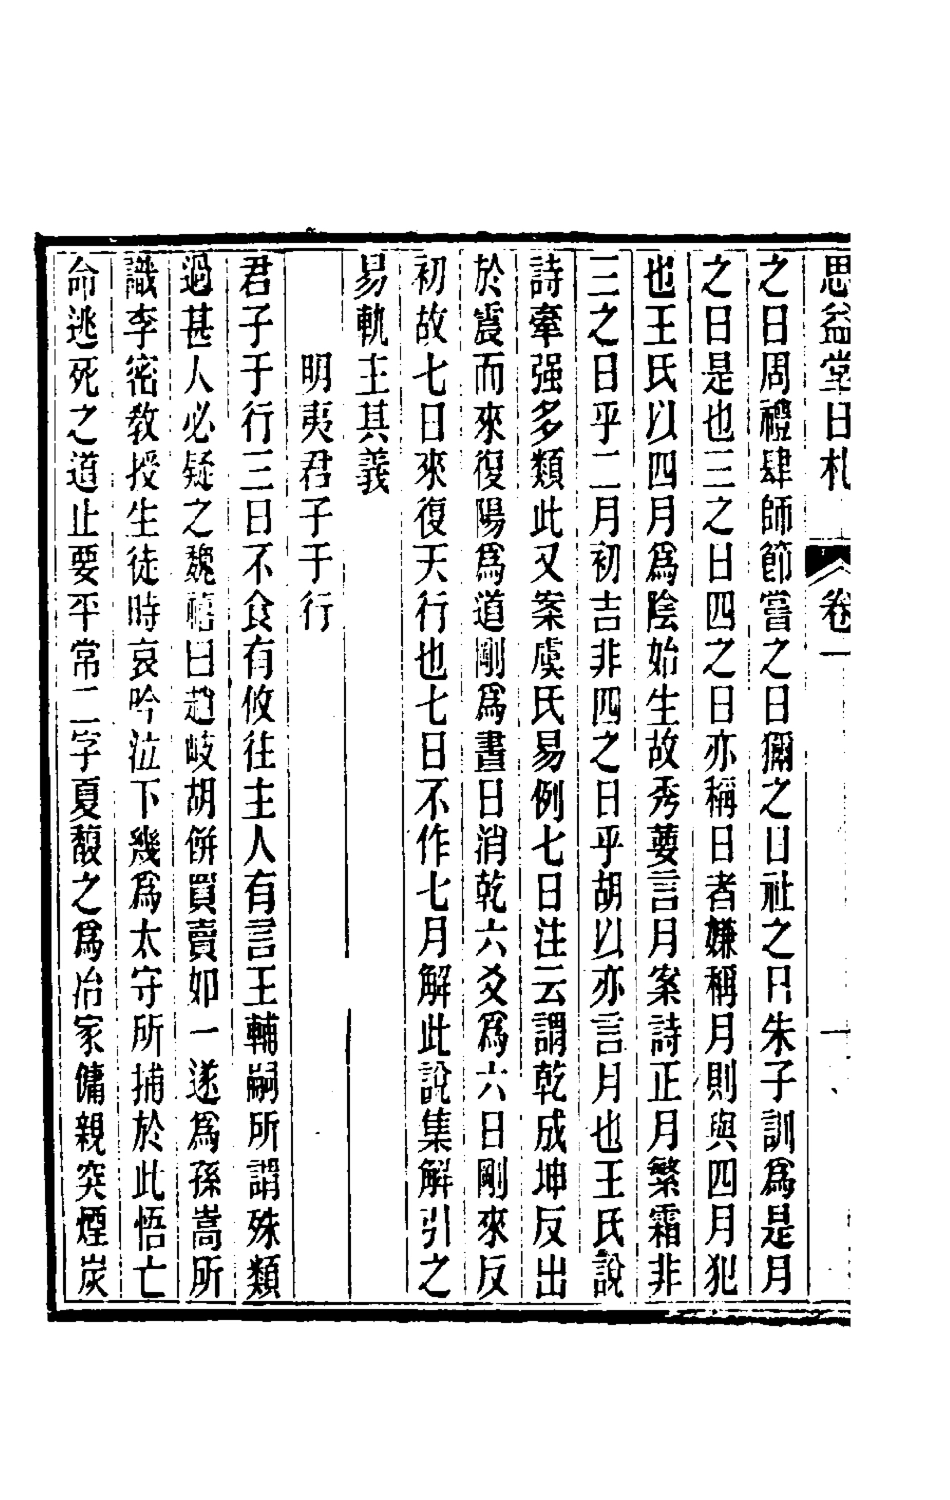 思益堂日札　卷一　一
之日周禮肆師節嘗之日獮之日社之日朱子訓爲是月
之日是也三之日四之日亦稱日者嫌稱月則與四月犯
也王氏以四月爲陰始生故秀葽言月案詩正月繁霜非
三之日乎二月初吉非四之日乎胡以亦言月也王氏說
詩牽强多類此又案虞氏易例七日注云謂乾成坤反出
於震而來復陽爲道剛爲晝日消乾六爻爲六日剛來反
初故七日來復天行也七日不作七月解此說集解引之
易軌主其義
明夷君子于行
君子于行三日不食有攸往主人有言王輔嗣所謂殊類
過甚人必疑之魏禧曰趙岐胡餅買賣如一遂爲孫嵩所
識李密教授生徒時哀吟泣下幾爲太守所捕於此悟亡
命逃死之道止要平常二字夏馥之爲冶家傭親突煙炭